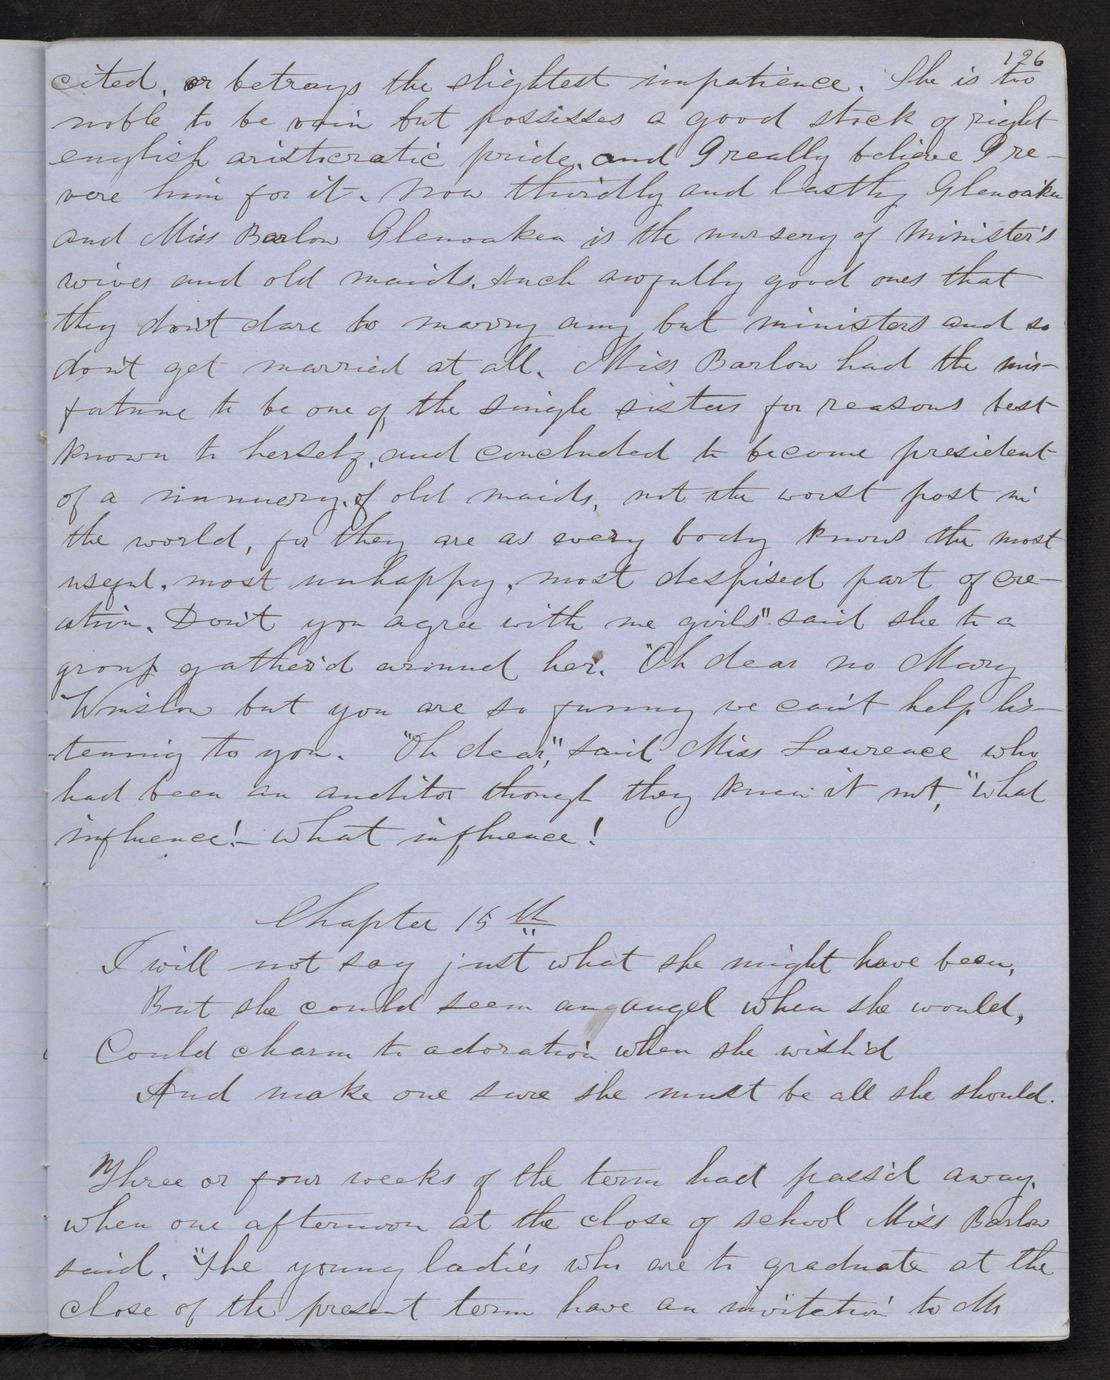 196
cited, or betrays the slightest impatience. She is too
noble to be vain but possisses a good stock of right
english aristocratic pride, and I really believe I re-
vere him for it. Now thirdly and lastly Glenoaken
and Miss Barlow Glenoaken is the nursery of Minister's
wives and old maids, such awfully good ones that
they don't dare to marry any but ministers and so
don't get married at all. Miss Barlow had the mis-
fortune to be one of the single sisters for reasons best
known to herself, and concluded to become president
of a nunnery, of old maids, not the worst post in
the world, for they are as every body knows the most
useful, most unhappy, most despised part of cre-
ation. Don't you agree with me girls" said she to a
group gather'd around her. "Oh dear no Mary
Winslow but you are so funny we can't help lis-
tenning to you. "Oh dear," said Miss Lawrence who
had been an auditor though they knew it not, "what
influence! - what influence!
Chapter 15th
I will not say just what she might have been,
But she could seem an angel when she would,
Could charm to adoration when she wish'd
And make one sure she must be all she should.
Three or four weeks of the term had pass'd away,
when one afternoon at the close of school Miss Barlow
said, "The young ladies who are to graduate at the
close of the present term have an invitation to Mr